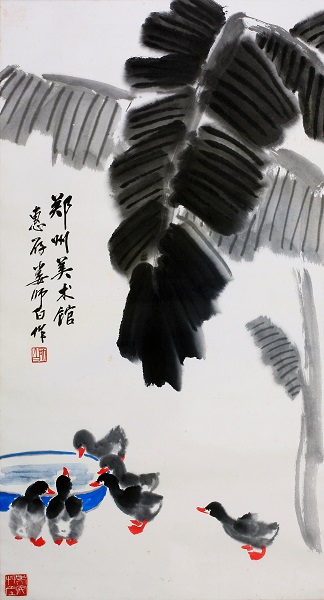 郑州美术馆
惠存娄师白作